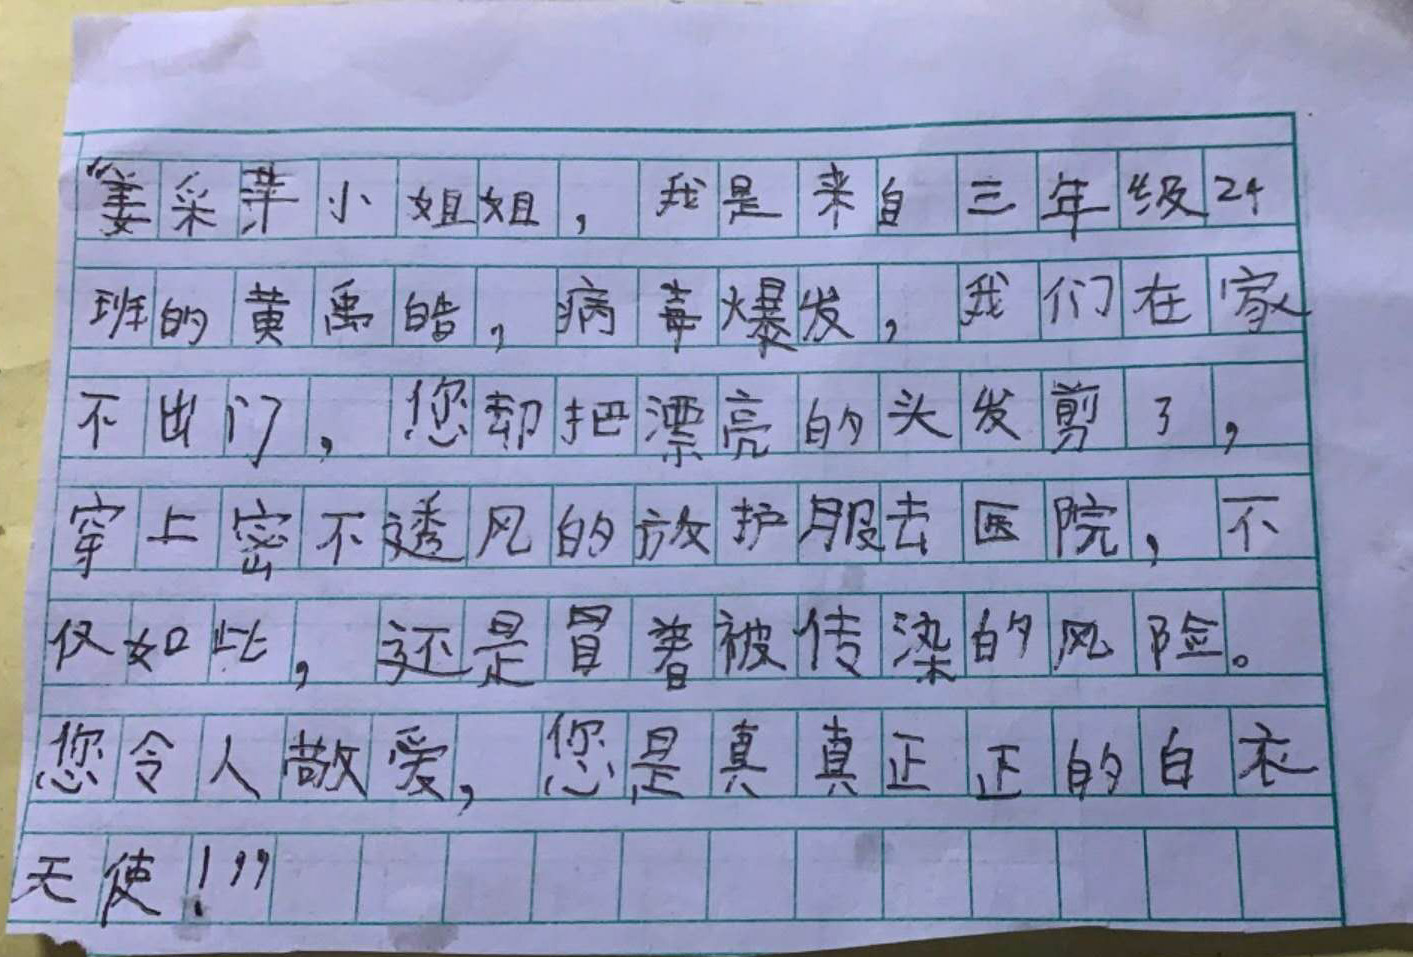 “姜采萍小姐姐，我是来自三年级24
班的黄禹皓，病毒爆发，我们在家
不出门，您却把漂亮的头发剪了，
穿上密不透风的放护服去医院，不
仅如此，还是冒着被传染的风险。
您令人敬爱，您是真真正正的白衣
天使！”